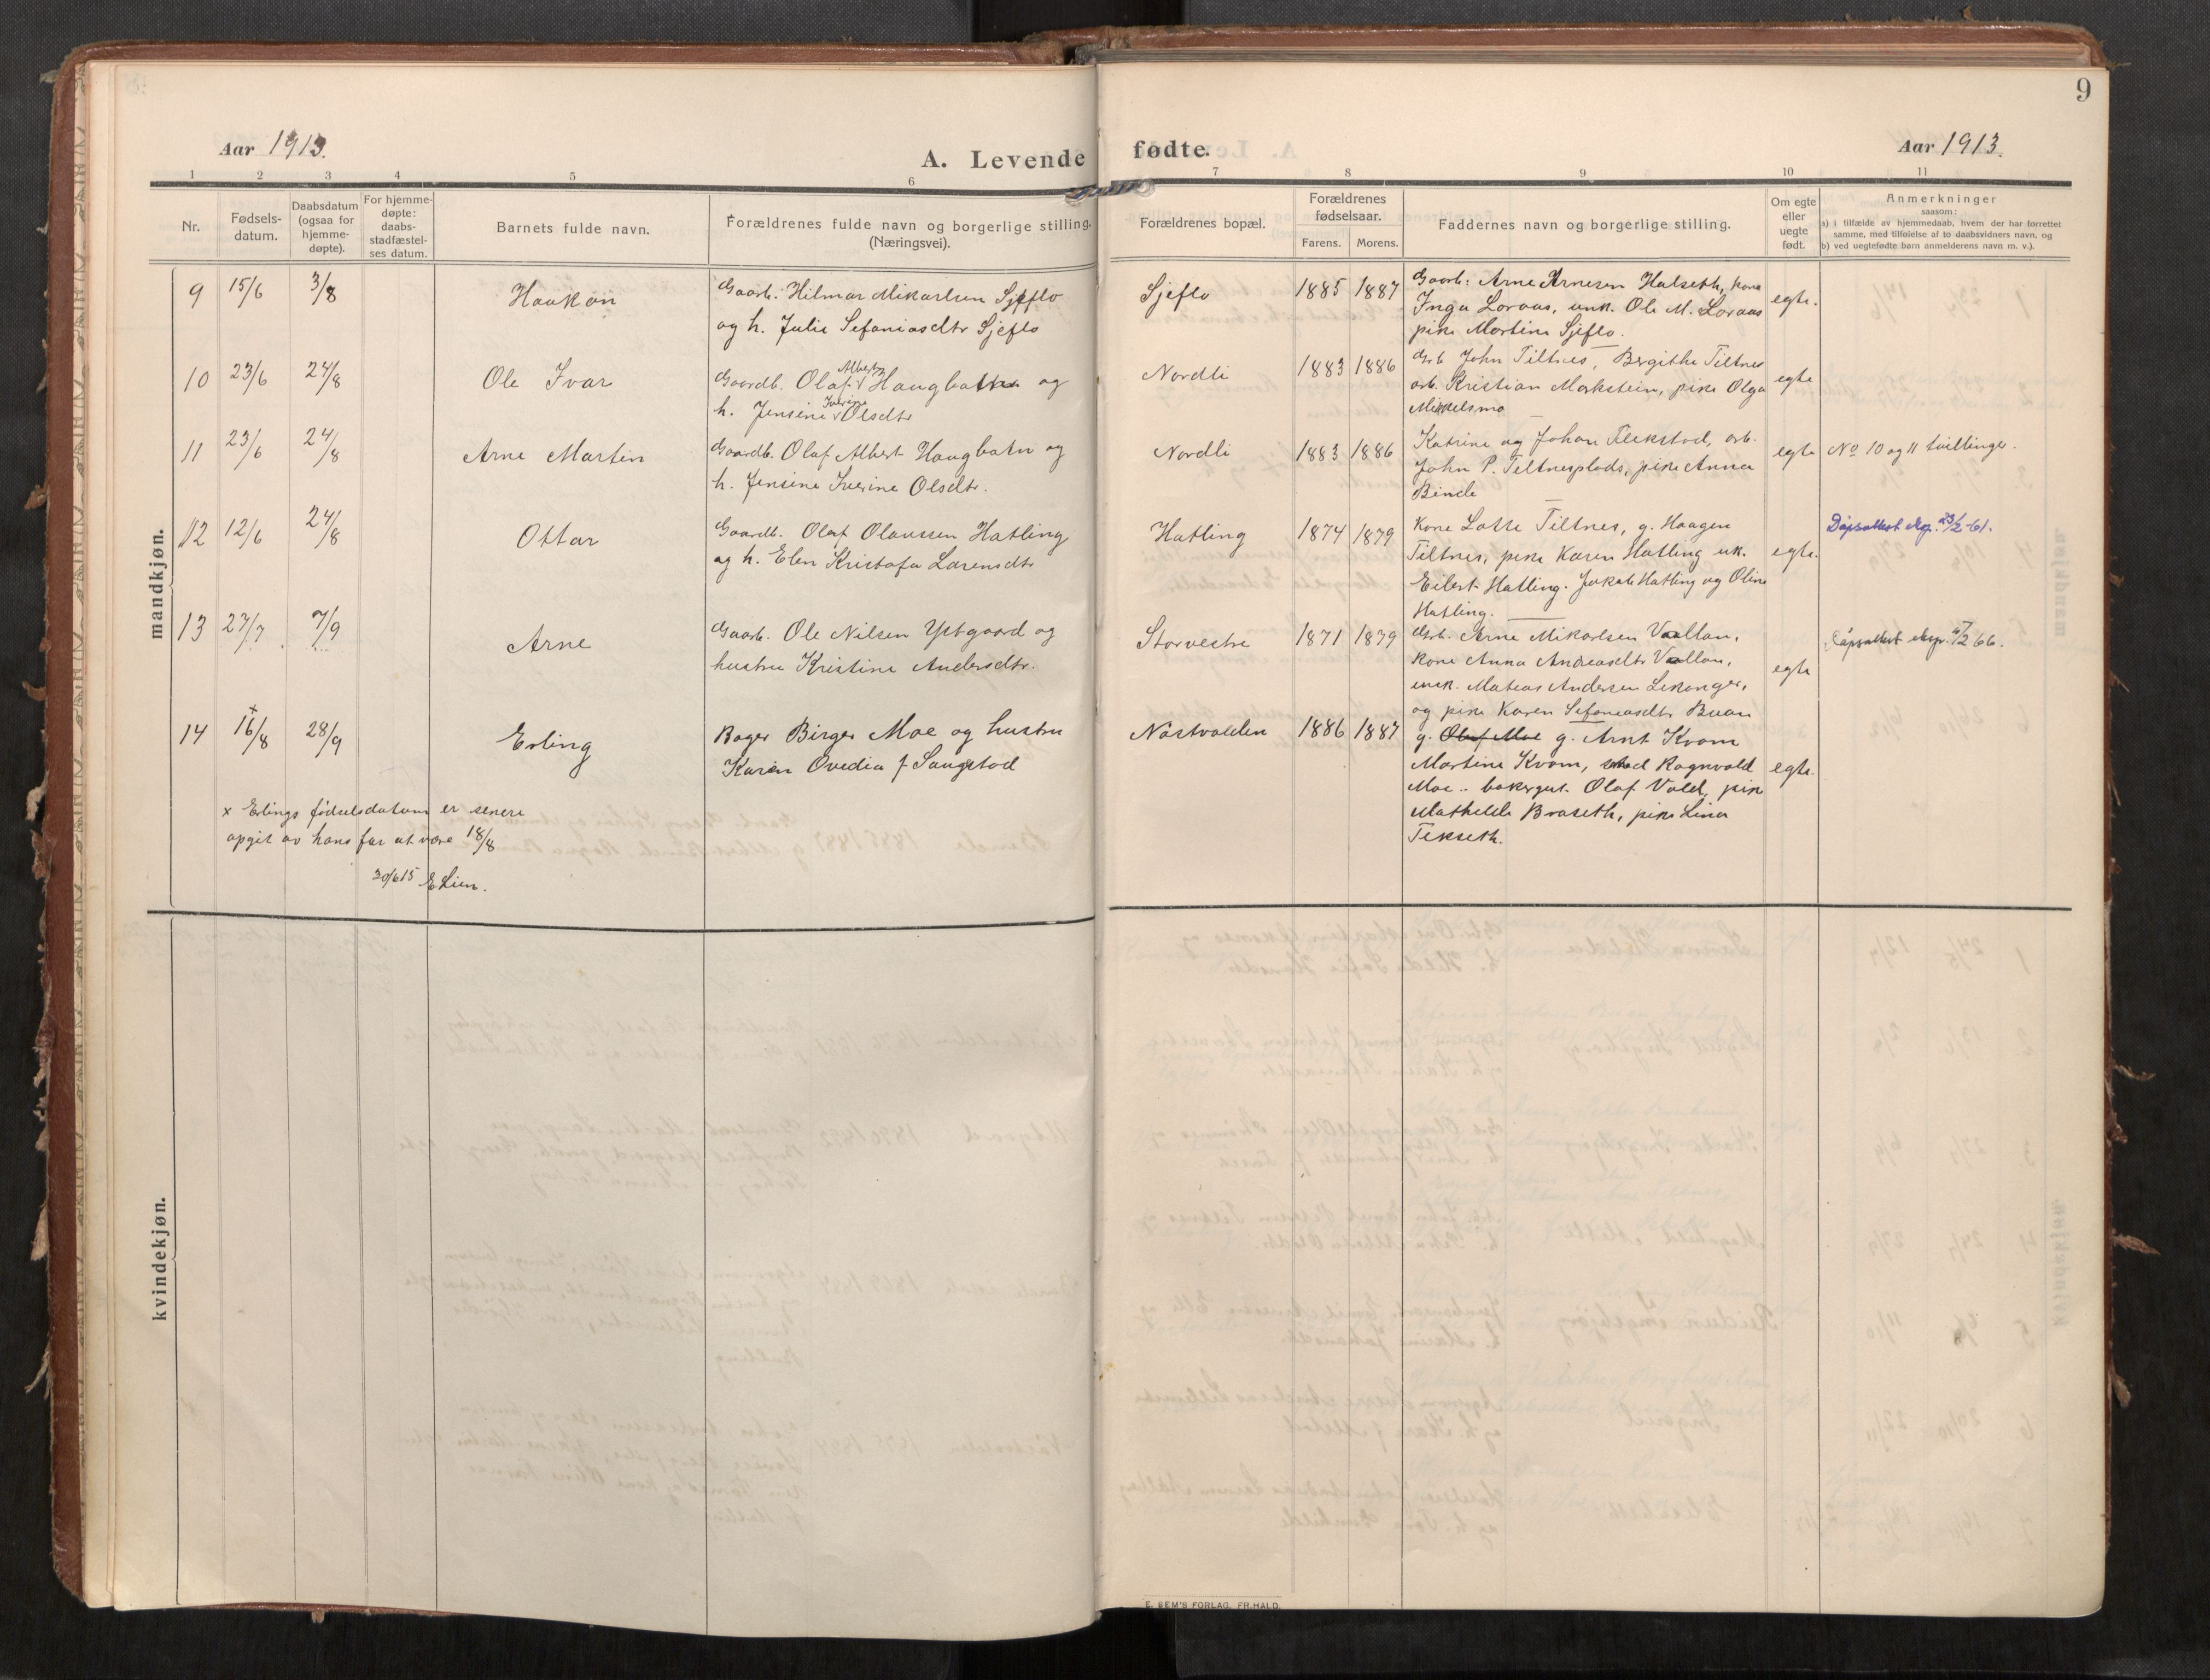 9
Aar 1913.
A. Levende fødte.
Aar 1913.
1 2 3 4 5 6 7 8 9 10 11
Nr.
Fødsels-
datum.
Daabsdatum
(ogsaa for
hjemme-
døpte).
For hjemme-
døpte:
daabs-
stadfæstel-
ses datum.
Barnets fulde navn.
Forældrenes fulde navn og borgerlige stilling.
(Næringsvei).
Forældrenes bopæl.
Forældrenes
fødselsaar.
Farens. Morens.
Faddernes navn og borgerlige stilling.
Om egte
eller
uegte
født.
Anmerkninger
saasom:
a) i tilfælde av hjemmedaab, hvem der har forrettet
samme, med tilføielse af to daabsvidners navn, og
b) ved uegtefødte barn anmelderens navn m. v.).
mandkjøn.
9 15/6 3/8 Haakon
Gaarb. Hilmar Mikarlsen Sjeflo
og h. Julie Sefaniasdtr Sjeflo
Sjeflo 1885 1887
Gaarb: Arne Arnesen Halseth, kone
Inga Loraas, unk. Ole M. Loraas
pike Martine Sjeflo.
egte.
10 23/6 24/8 Ole Ivar
Gaardb. Olaf Albert Haugbotn og
h. Jensine Iverine Olsdtr
Nordli 1883 1886
Grb John Tiltnes, Bergithe Tiltnes
arb. Kristian Markstein, pike Olga
Mikkelsmo
egte
11 23/6 24/8 Arne Martin
Gaardb. Olaf Albert Haugbotn og
h. Jensine Iverine Olsdtr.
Nordli 1883 1886
Katrine og Johan Flekstad, arb.
John P. Tiltnesplads, pike Anna
Binde
egte
No 10 og 11 tvillinger.
12 12/6 24/8 Ottar
Gaardb. Olaf Olaussen Hatling
og h. Elen Kristofa Larensdtr
Hatling 1874 1879
Kone Lotte Tiltnes, g. Haagen
Tiltnes, pike Karen Hatling uk.
Eilert Hatling. Jakob Hatling og Oline
Hatling.
egte.
Dåpsattest eksp. 23/2-61.
13 27/7 7/9 Arne
Gaarb. Ole Nilsen Ystgaard og
hustru Kristine Andersdtr.
Storvestre 1871 1879
Grb. Arne Mikarlsen Vollan,
kone Anna Andreasdtr Vollan,
unk. Matias Andersen Lekanger,
og pike Karen Sefaniasdtr Buan
egte
Dåpsattest eksp. 4/2 66.
14 x16/8 28/9 Erling
Bager Birger Moe og hustru
Karen Ovedia f Saugstad
Nøstvolden 1886 1887
g. Olaf Moe g. Arnt Kvam
Martine Kvam, Ragnvald
Moe.. bakergut. Olaf Vold, pike
Mathilde Braseth, pike Lina
Tekseth.
egte.
x Erlings fødselsdatum er senere
opgit av hans far at være 18/8
30/6 15 E Lien.
kvindekjøn.
E. SEM'S FORLAG, FR.HALD.